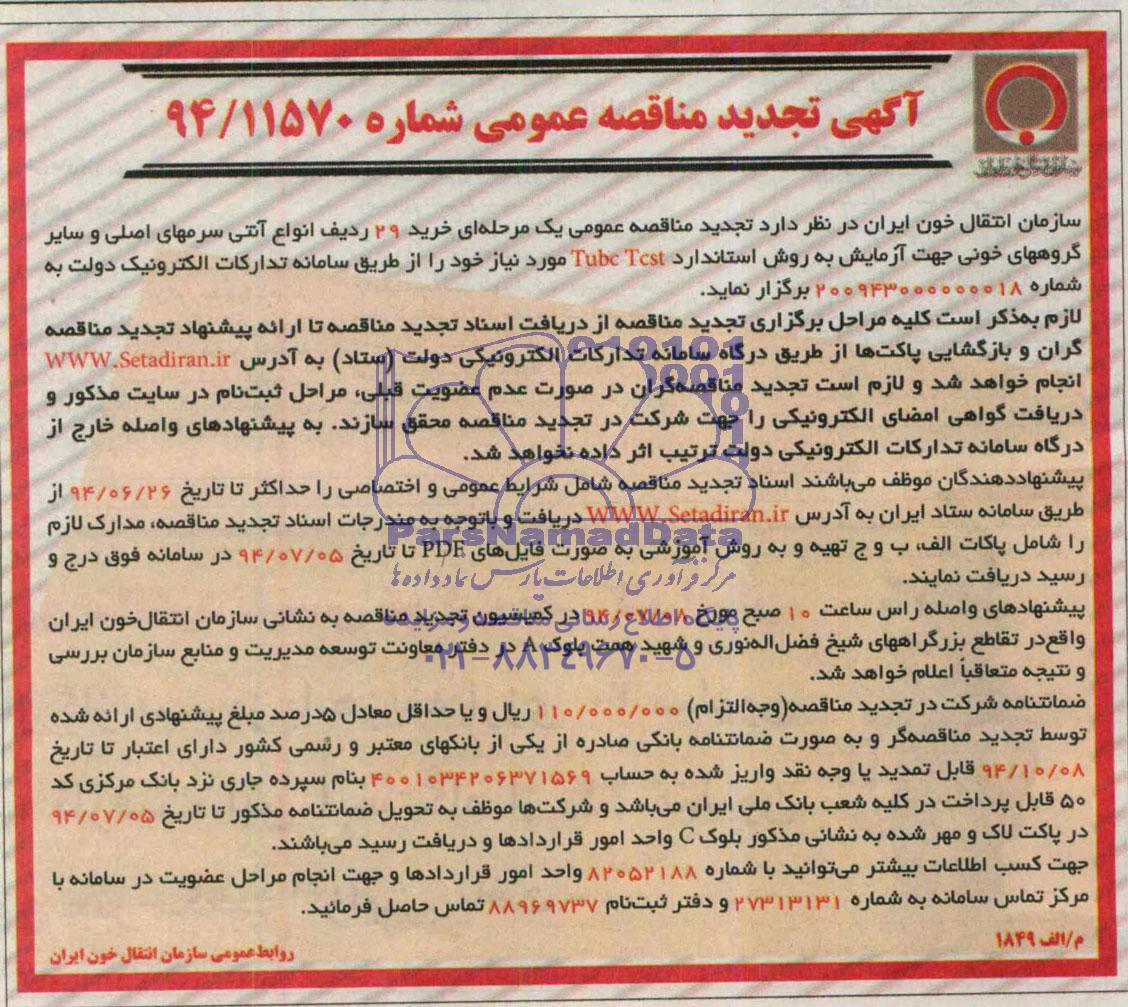 آگهی تجدید مناقصه عمومی شماره ۹۴/۱۱۵۷۰
سازمان انتقال خون ایران
سازمان انتقال خون ایران در نظر دارد تجدید مناقصه عمومی یک مرحله‌ای خرید ۲۹ ردیف انواع آنتی سرمهای اصلی و سایر
گروههای خونی جهت آزمایش به روش استاندارد Tubc Tcst مورد نیاز خود را از طریق سامانه تدارکات الکترونیک دولت به
شماره ۲۰۰۹۴۳۰۰۰۰۰۰۰۰۱۸ برگزار نماید.
لازم به‌ذکر است کلیه مراحل برگزاری تجدید مناقصه از دریافت اسناد تجدید مناقصه تا ارائه پیشنهاد تجدید مناقصه
گران و بازگشایی پاکت‌ها از طریق درگاه سامانه تدارکات الکترونیکی دولت (ستاد) به آدرس WWW.Setadiran.ir
انجام خواهد شد و لازم است تجدید مناقصه‌گران در صورت عدم عضویت قبلی، مراحل ثبت‌نام در سایت مذکور و
دریافت گواهی امضای الکترونیکی را جهت شرکت در تجدید مناقصه محقق سازند. به پیشنهادهای واصله خارج از
درگاه سامانه تدارکات الکترونیکی دولت ترتیب اثر داده نخواهد شد.
پیشنهاددهندگان موظف می‌باشند اسناد تجدید مناقصه شامل شرایط عمومی و اختصاصی را حداکثر تا تاریخ ۹۴/۰۶/۲۶ از
طریق سامانه ستاد ایران به آدرس WWW.Setadiran.ir دریافت و باتوجه به مندرجات اسناد تجدید مناقصه، مدارک لازم
را شامل پاکات الف، ب و ج تهیه و به روش آموزشی به صورت فایل‌های PDF تا تاریخ ۹۴/۰۷/۰۵ در سامانه فوق درج و
رسید دریافت نمایند.
پیشنهادهای واصله راس ساعت ۱۰ صبح مورخ ۹۴/۰۷/۰۸ در کمیسیون تجدید مناقصه به نشانی سازمان انتقال‌خون ایران
واقع‌در تقاطع بزرگراههای شیخ فضل‌اله‌نوری و شهید همت بلوک A در دفتر معاونت توسعه مدیریت و منابع سازمان بررسی
و نتیجه متعاقباً اعلام خواهد شد.
ضمانتنامه شرکت در تجدید مناقصه(وجه‌التزام) ۱۱۰/۰۰۰/۰۰۰ ریال و یا حداقل معادل ۵درصد مبلغ پیشنهادی ارائه شده
توسط تجدید مناقصه‌گر و به صورت ضمانتنامه بانکی صادره از یکی از بانکهای معتبر و رسمی کشور دارای اعتبار تا تاریخ
۹۴/۱۰/۰۸ قابل تمدید یا وجه نقد واریز شده به حساب ۴۰۰۱۰۳۴۲۰۶۳۷۱۵۶۹ بنام سپرده جاری نزد بانک مرکزی کد
۵۰ قابل پرداخت در کلیه شعب بانک ملی ایران می‌باشد و شرکت‌ها موظف به تحویل ضمانتنامه مذکور تا تاریخ ۹۴/۰۷/۰۵
در پاکت لاک و مهر شده به نشانی مذکور بلوک C واحد امور قراردادها و دریافت رسید می‌باشند.
جهت کسب اطلاعات بیشتر می‌توانید با شماره ۸۲۰۵۲۱۸۸ واحد امور قراردادها و جهت انجام مراحل عضویت در سامانه با
مرکز تماس سامانه به شماره ۲۷۳۱۳۱۳۱ و دفتر ثبت‌نام ۸۸۹۶۹۷۳۷ تماس حاصل فرمائید.
م/الف ۱۸۴۹
روابط‌عمومی سازمان انتقال خون ایران
ParsNamadData
مرکز فرآوری اطلاعات پارس نماد داده‌ها
۰۲۱-۸۸۳۴۹۶۷۰-۵